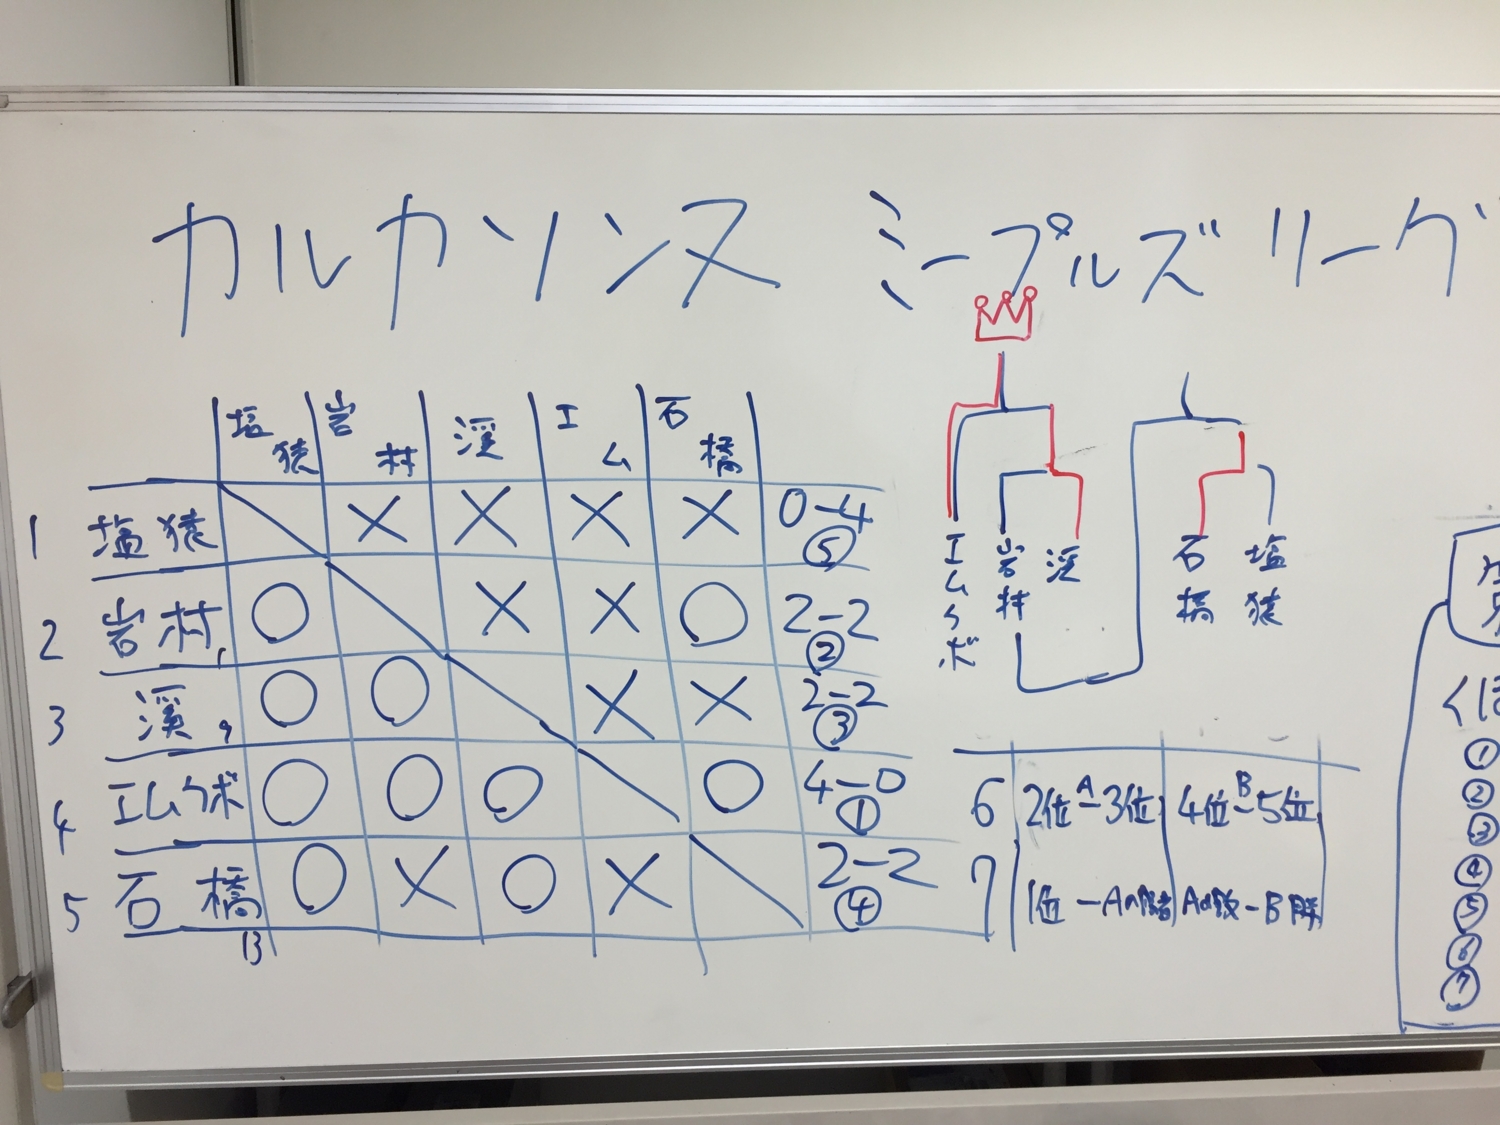 カルカソンヌ ミープルズリーグ
塩猿 岩村 渓 エム 石橋
1 塩猿 × × × × 0-4 ⑤
2 岩村 ○ × × ○ 2-2 ②
3 渓 9 ○ ○ × × 2-2 ③
4 エムクボ ○ ○ ○ ○ 4-0 ①
5 石橋 13 ○ × ○ × 2-2 ④
エムクボ 岩村 渓 石橋 塩猿
6 2位-A-3位 4位-B-5位
7 1位-Aの勝者 Aの敗-B勝
くぼ
①
②
③
④
⑤
⑥
⑦